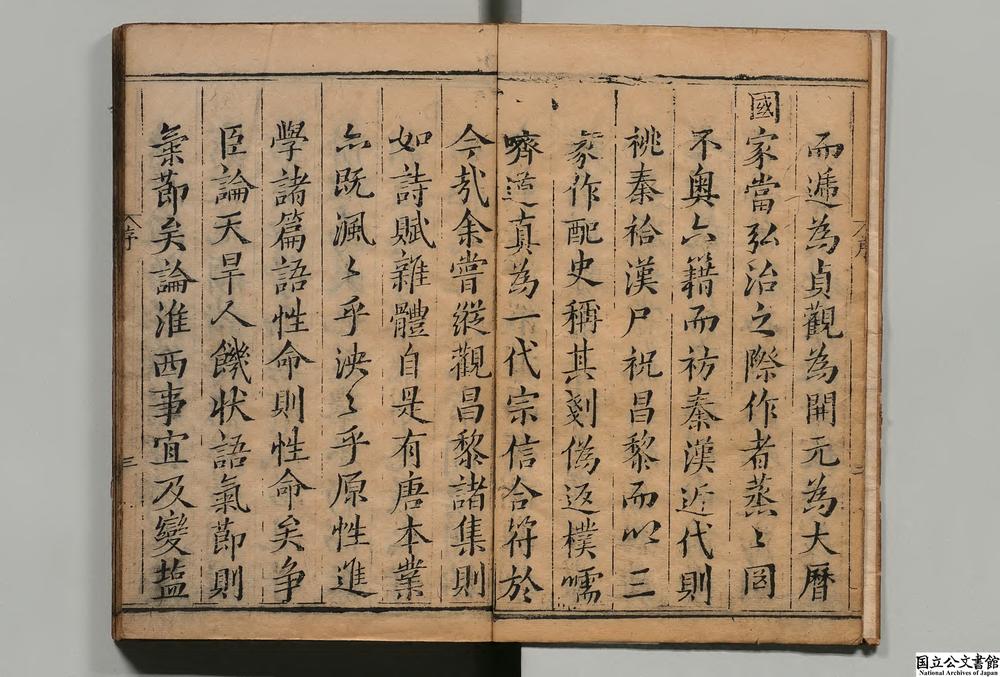 而遞為貞觀為開元為大曆
國家當弘治之際作者蒸〻罔
不奧六籍而祊秦漢近代則
祧秦祫漢尸祝昌黎而以三
彖作配史稱其剗偽返樸嚅
嚌道真為一代宗信合符於
今哉余嘗縱觀昌黎諸集則
如詩賦雜體自是有唐本業
亦既渢〻乎泱〻乎原性進
學諸篇語性命則性命矣争
臣論天旱人饑状語氣節則
氣節矣論淮西事宜及變盐
序
三
国立公文書館
National Archives of Japan